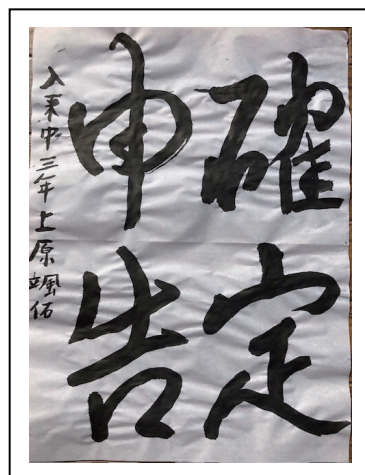 確定
申告
入東中三年上原颯佑